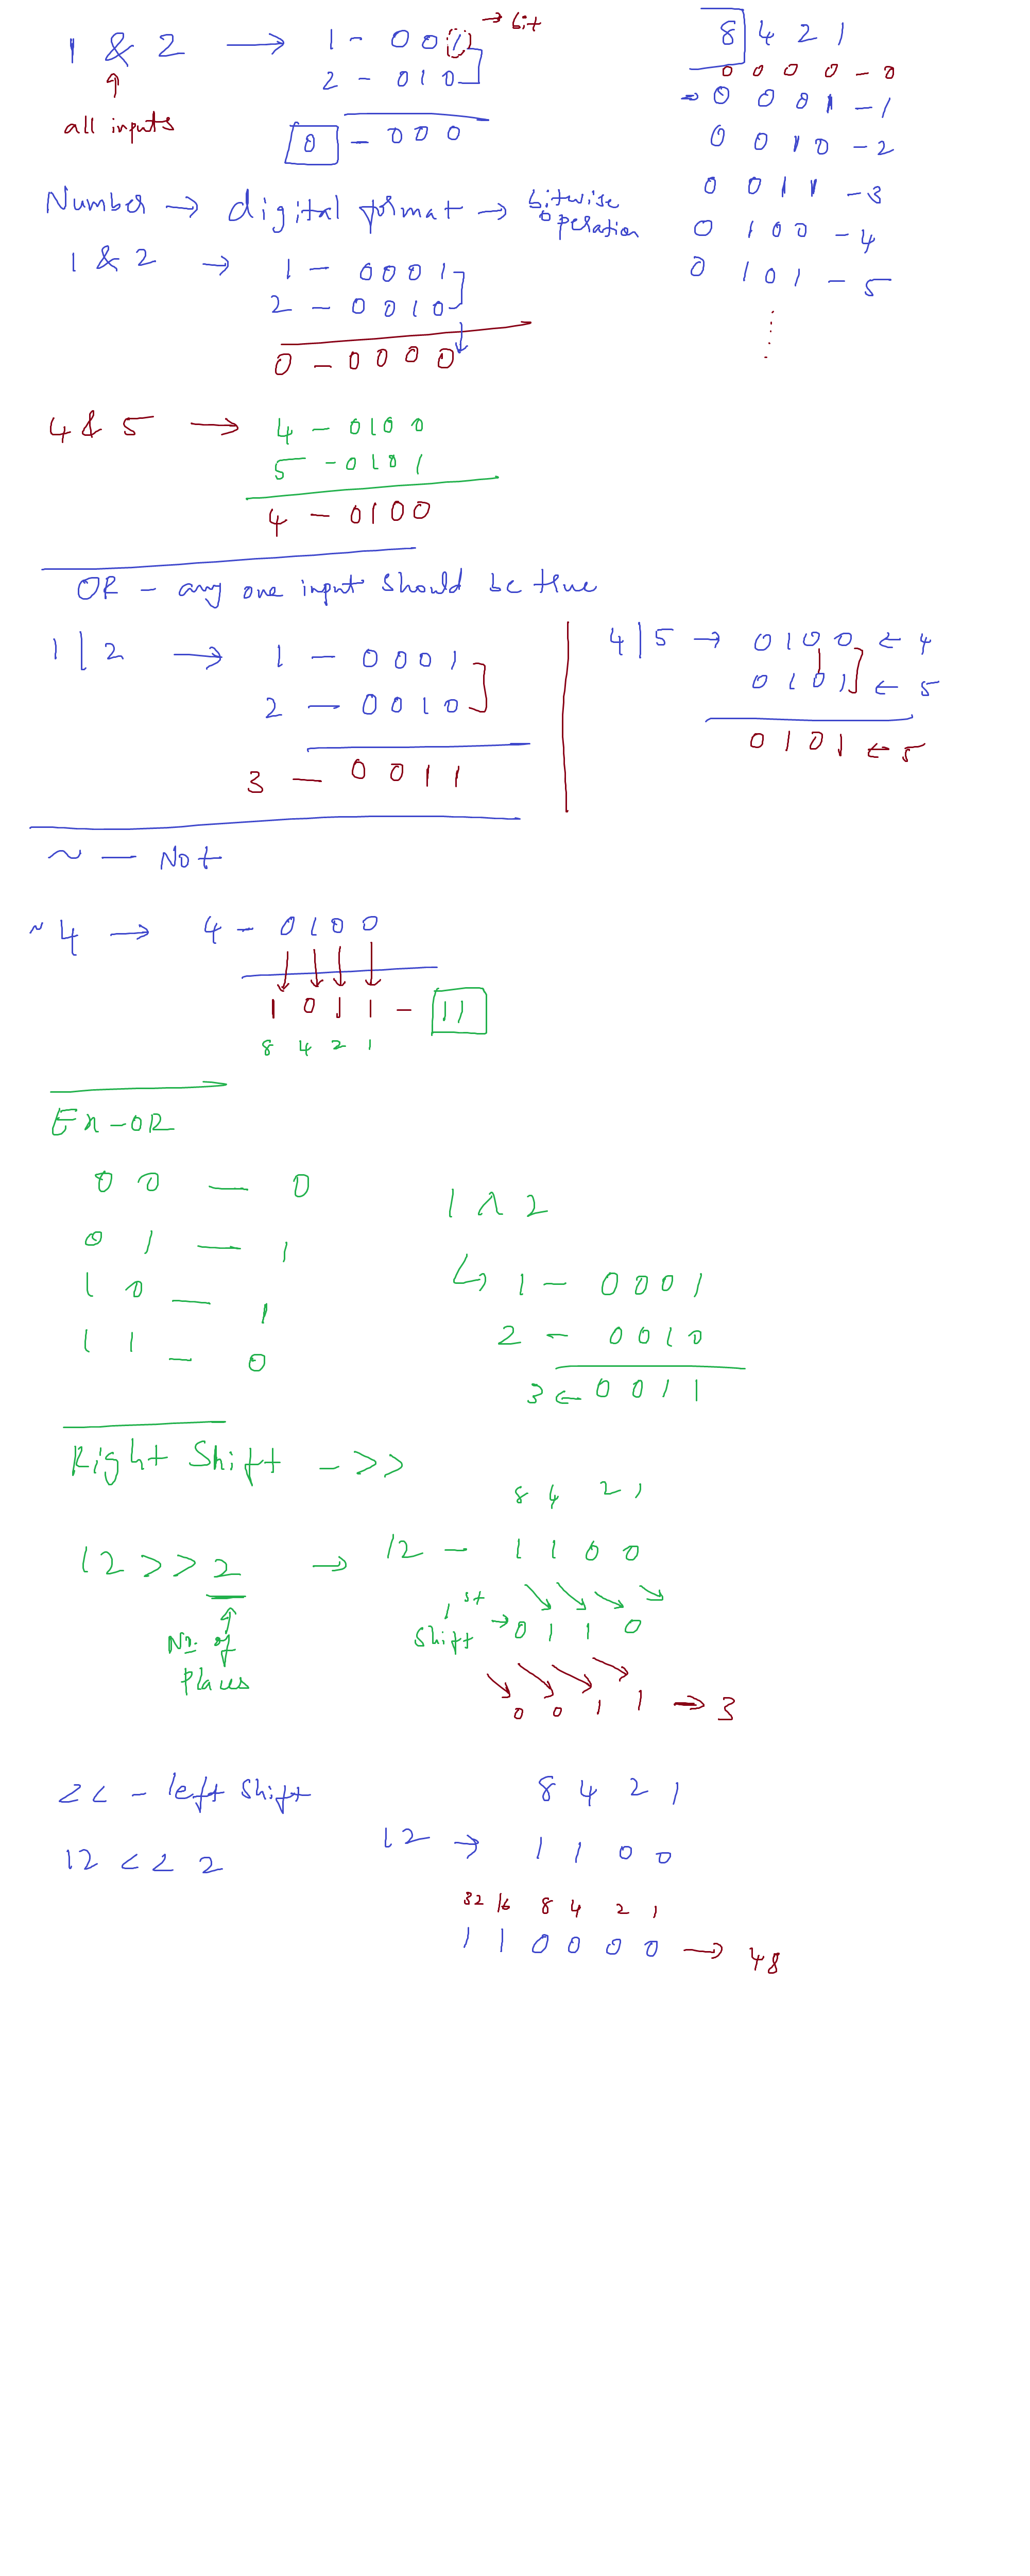 1 & 2 → 1 - 0 0 1 → bit
2 - 0 1 0
all inputs
0 - 0 0 0
8 4 2 1
0 0 0 0 - 0
→ 0 0 0 1 - 1
0 0 1 0 - 2
0 0 1 1 - 3
0 1 0 0 - 4
0 1 0 1 - 5
Number → digital format → bitwise operation
1 & 2 → 1 - 0 0 0 1
2 - 0 0 1 0
0 - 0 0 0 0
4 & 5 → 4 - 0 1 0 0
5 - 0 1 0 1
4 - 0 1 0 0
OR - any one input should be true
1 | 2 → 1 - 0 0 0 1
2 - 0 0 1 0
3 - 0 0 1 1
4 | 5 → 0 1 0 0 ← 4
0 1 0 1 ← 5
0 1 0 1 ← 5
~ - Not
~ 4 → 4 - 0 1 0 0
1 0 1 1 - 11
8 4 2 1
Ex-OR
0 0 - 0
0 1 - 1
1 0 - 1
1 1 - 0
1 ^ 2
↳ 1 - 0 0 0 1
2 - 0 0 1 0
3 ← 0 0 1 1
Right Shift - >>
8 4 2 1
12 >> 2 → 12 - 1 1 0 0
No. of places
1st shift → 0 1 1 0
0 0 1 1 → 3
<< - left shift
8 4 2 1
12 << 2
12 → 1 1 0 0
32 16 8 4 2 1
1 1 0 0 0 0 → 48